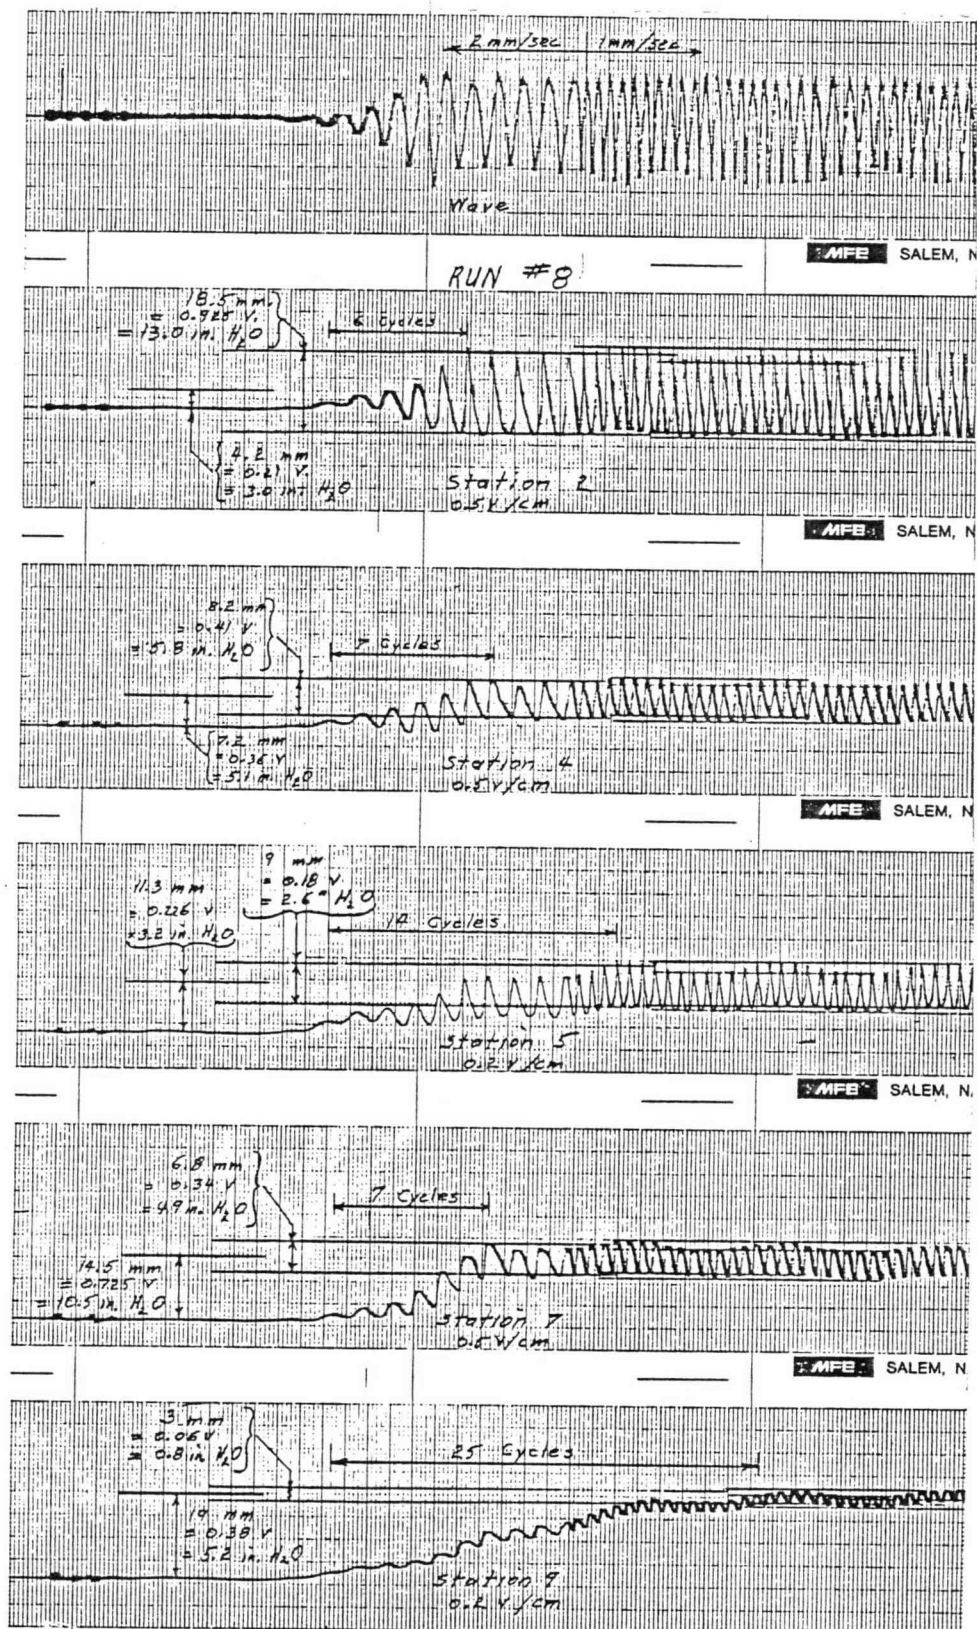 2 mm/sec 1 mm/sec
Wave
MFE SALEM, N
RUN #8
18.5 mm.
= 0.925 V.
= 13.0 in. H2O
6 Cycles
4.2 mm
= 0.21 V.
= 3.0 in. H2O
Station 2
0.5 V/cm
MFE SALEM, N
8.2 mm
= 0.41 V
= 5.8 in. H2O
7 Cycles
7.2 mm
= 0.36 V
= 5.1 in. H2O
Station 4
0.5 V/cm
MFE SALEM, N
9 mm
= 0.18 V.
= 2.6" H2O
11.3 mm
= 0.226 V
= 3.2 in. H2O
14 Cycles
Station 5
0.2 V/cm
MFE SALEM, N.
6.8 mm
= 0.34 V
= 4.9 in. H2O
7 Cycles
14.5 mm
= 0.725 V
= 10.5 in. H2O
Station 7
0.5 V/cm
MFE SALEM, N
3 mm
= 0.06 V
= 0.8 in H2O
25 Cycles
19 mm
= 0.38 V
= 5.2 in. H2O
Station 9
0.2 V/cm